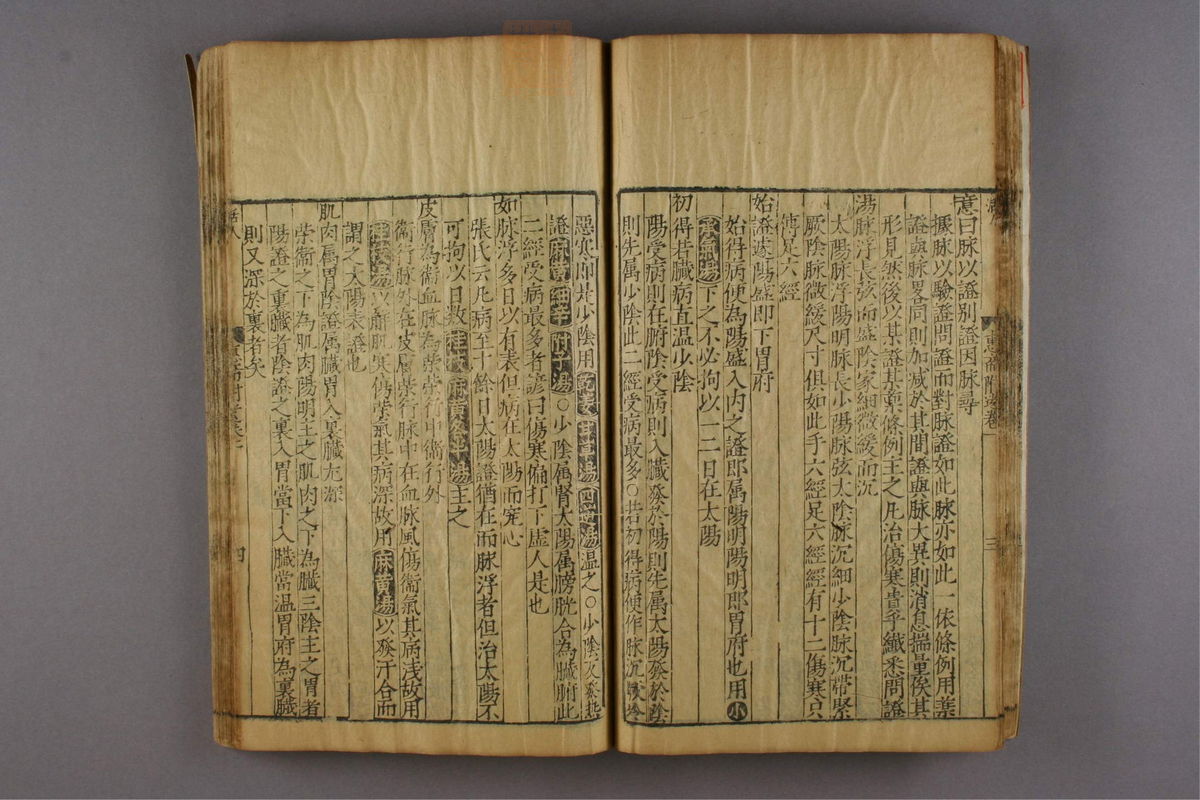 意曰脉以證别證因脉尋
據脉以驗證問證而對脉證如此脉亦如此一依條例用藥
證與脉畧同則加减於其間證與脉大異則消息揣量候其
形見然後以某證某藥條例主之凡治傷寒貴乎纎悉問證
湯脉浮長弦而盛陰家細微緩而沉
太陽脉浮陽明脉長少陽脉弦太陰脉沉細少陰脉沉帶緊
厥陰脉微緩尺寸俱如此手六經足六經經有十二傷寒只
傳足六經
始證遂陽盛即下胃府
始得病便為陽盛入内之證即属陽明陽明即胃府也用小
承氣湯下之不必拘以一二日在太陽
初得若臓病直温少陰
陽受病則在腑陰受病則入臓發於陽則先属太陽發於陰
則先属少陰此二經受病最多○若初得病便作脉沉厥冷
惡寒即是少陰用乾姜甘草湯四逆湯温之○少陰反發热
證麻黄細辛附子湯○少陰属腎太陽属膀胱合為臓腑此
二經受病最多者諺曰傷寒偏打下虚人是也
如脉浮多日以有表但病在太陽而究心
張氏云凡病至十餘日太陽證猶在而脉浮者但治太陽不
可拘以日数桂枝麻黄各半湯主之
皮膚為衛血脉為榮榮行中衛行外
衛行脉外在皮膚榮行脉中在血脉風傷衛氣其病浅故用
桂枝湯以解肌寒傷榮氣其病深故用麻黄湯以發汗合而
謂之太陽表證也
肌肉属胃陰證属臓胃入裏臓尤深
榮衛之下為肌肉陽明主之肌肉之下為臓三陰主之胃者
陽證之裏臓者陰證之裏入胃當下入臓當温胃府為裏臓
則又深於裏者矣
活人
四